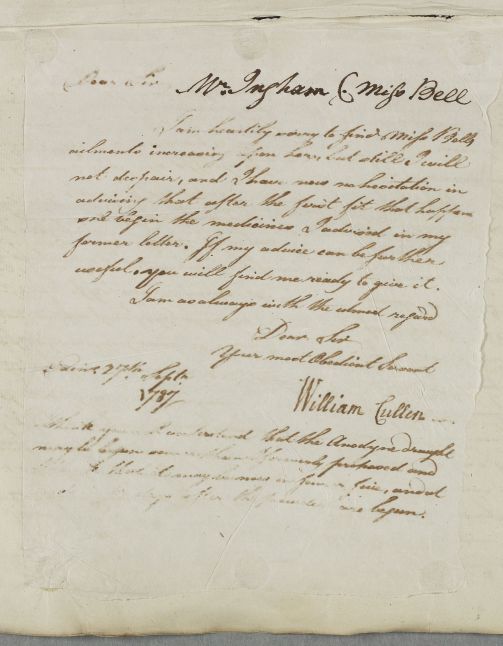 Dear Sir Mr. Ingham C. Miss Bell
I am heartily sorry to find Miss Bells
ailments increasing upon her, but still I will
not despair, and I have now no hesitation in
advising that after the first fit that happens
one begin the medicines I advised in my
former letter. If my advice can be further
useful, you will find me ready to give it.
I am as always with the utmost regard
Dear Sir
Your most Obedient Servant
Edinr. 27th Septr.
1787
William Cullen
that the Anodyne draught
may be begun formerly proposed and
and
after the are begun.